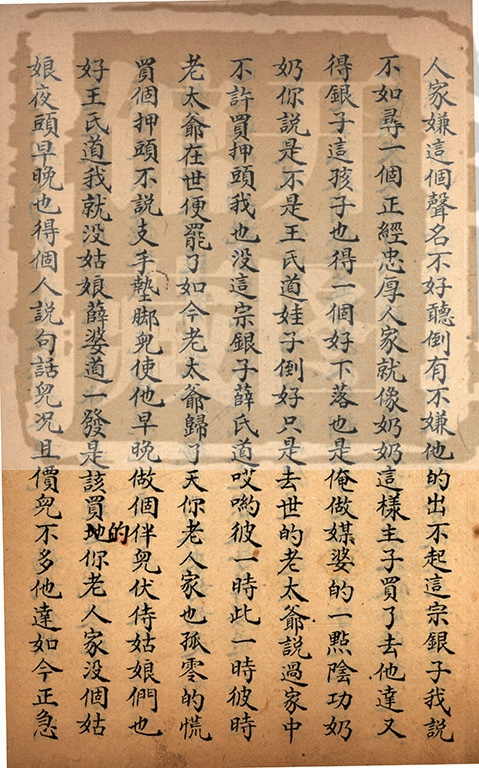 人家嫌這個聲名不好聽倒有不嫌他的出不起這宗銀子我説
不如尋一個正經忠厚人家就像奶奶這樣主子買了去他達又
得銀子這孩子也得一個好下落也是俺做媒婆的一點陰功奶
奶你説是不是王氏道娃子倒好只是去世的老太爺説過家中
不許買押頭我也没這宗銀子薛氏道哎喲彼一時此一時彼時
老太爺在世便罷了如今老太爺歸了天你老人家也孤零的慌
買個押頭不説支手墊脚兒使他早晚做個伴兒伏侍姑娘們也
好王氏道我就没姑娘薛婆道一發是該買地的你老人家没個姑
娘夜頭早晚也得個人説句話兒况且價兒不多他達如今正急